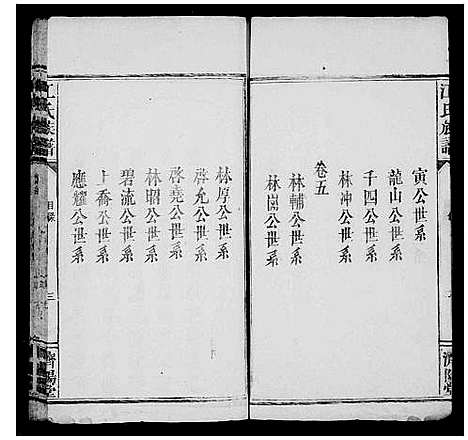 江氏族譜
寅公世系
龍山公世系
千四公世系
林沖公世系
卷五
林輔公世系
林崗公世系
林厚公世系
啓允公世系
啓堯公世系
林昭公世系
碧流公世系
十喬公世系
應耀公世系
江氏族譜
目錄
三
濟陽堂